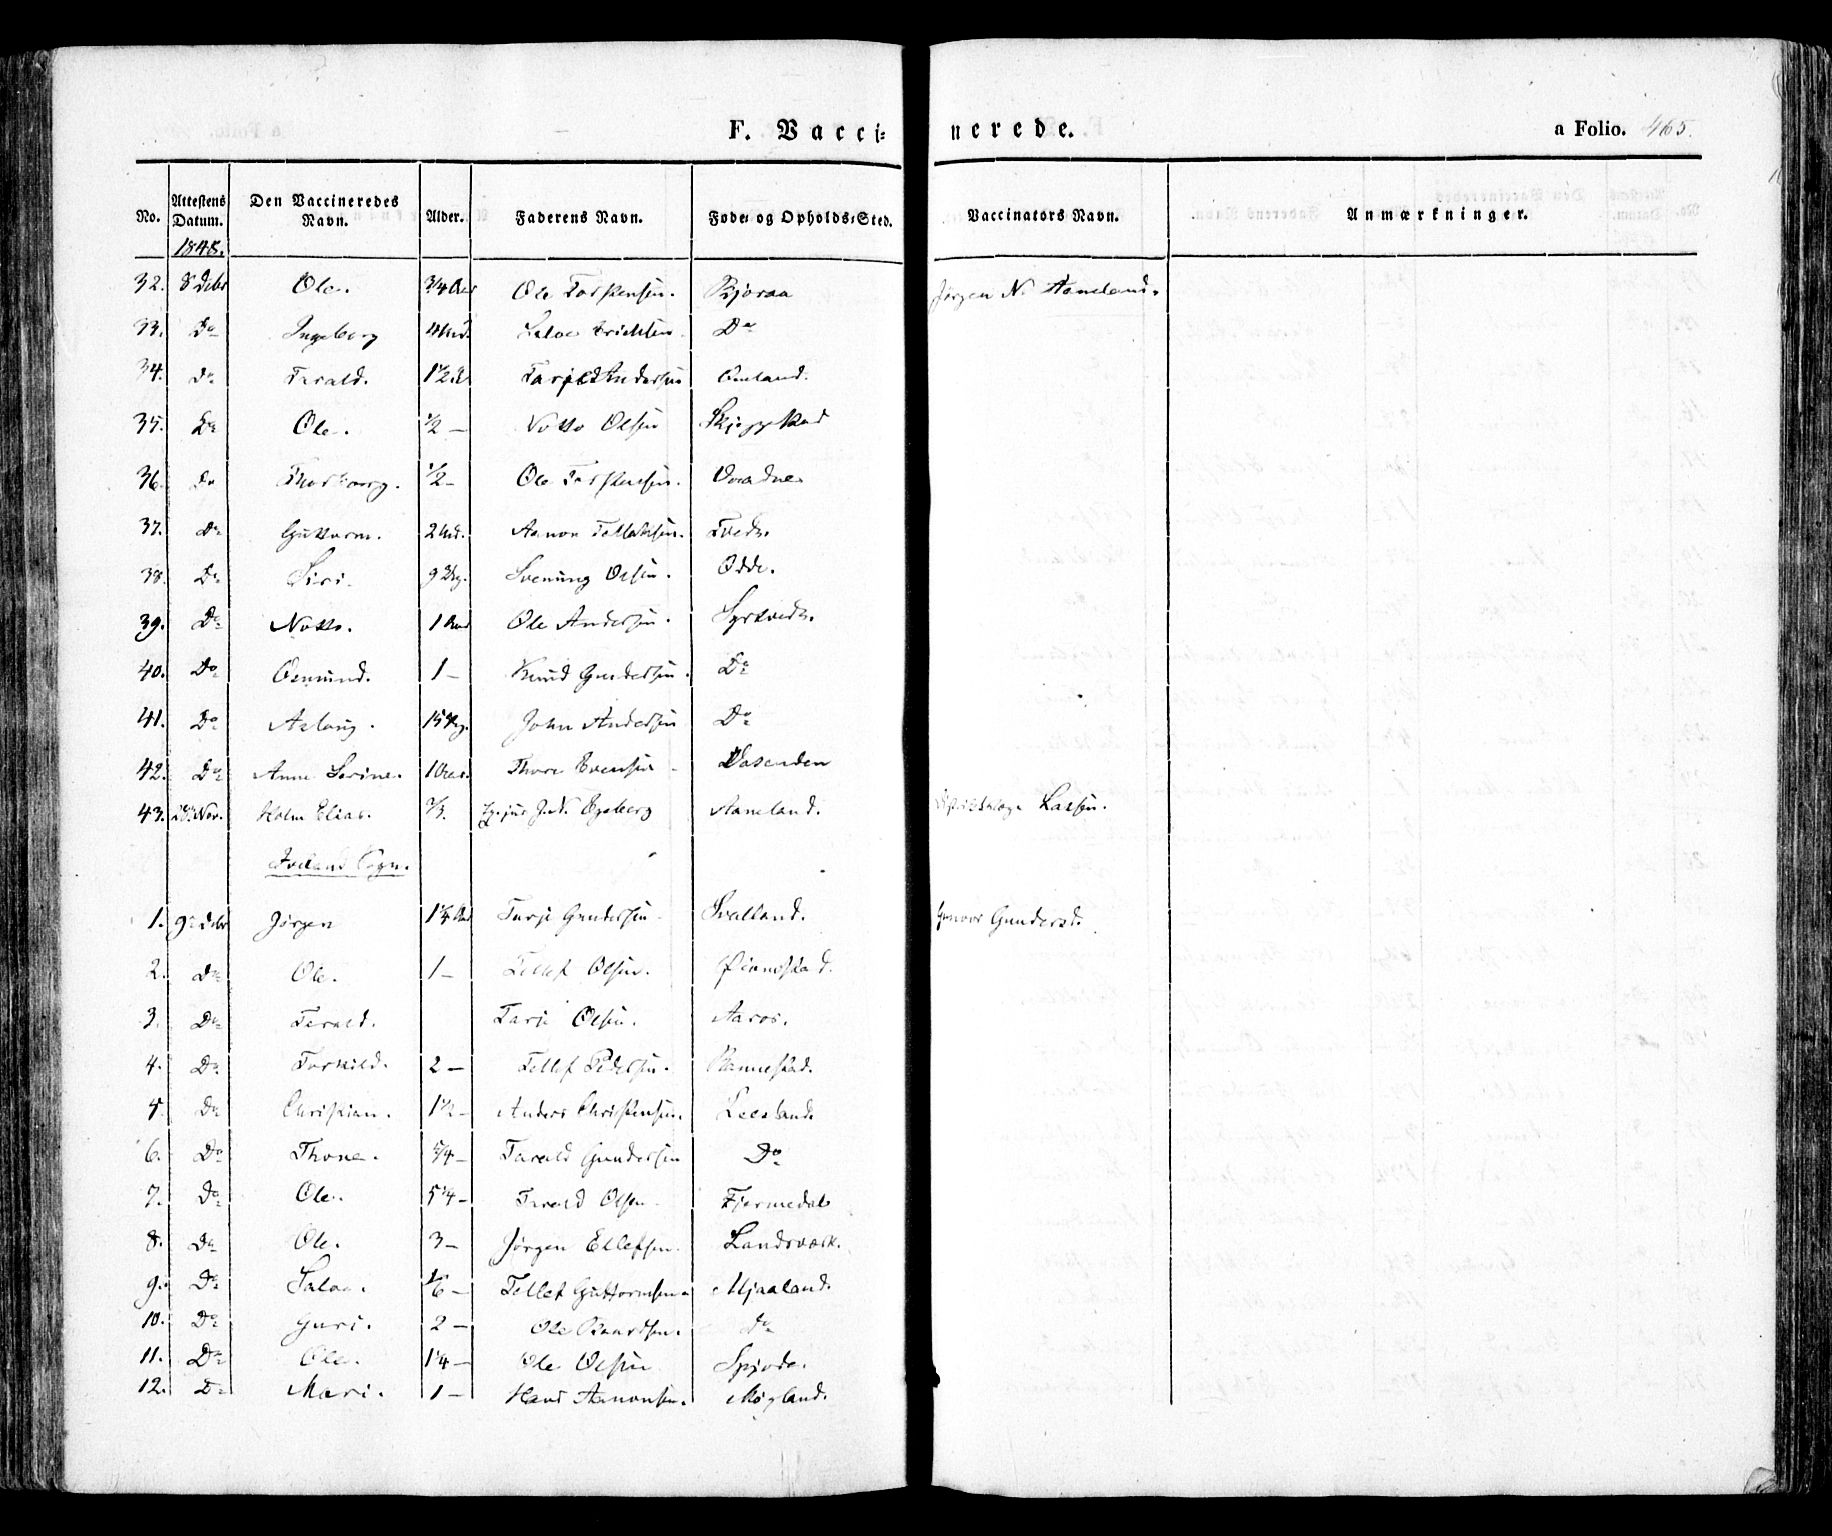 F. Vacci=nerede. a Folio. 465.
No. Attestens Datum. Den Vaccineredes Navn. Alder. Faderens Navn. Føde= og Opholds=Sted. Vaccinators Navn. Anmærkninger.
1848.
32. 8 Debr Ole. 3/4 Ole Torkensen. Bjoraa Jørgen N. Aaneland.
33. Do Ingeborg Salve Erichsen Do
34. Do Tarald. 1 1/2 Tarjeld Andersen Omland.
35. Do Ole. 1/2 — Notto Olsen Skjeggestad
36. Do Thorborg. 1/2 — Ole Torkensen.
37. Do Guttorm. 2 Aanon Tellefsen. Tveds.
38. Do Siri. 9 Svenung Olsen. Odde.
39. Do Notto. 1 Ole Andersen. Syrtveds.
40. Do Osmund. 1 — Knud Gundersen. Do
41. Do Aslaug. 15 John Andersen Do
42. Do Anne Serine. Thore Evensen Vasenden
43. 28 Nov. Holm Elias. 2/3. J. N. Egeberg Aaneland. Lassen.
Iveland Sogn.
1. 9 Debr Jørgen 1 1/4 Tarje Gundersen Ivelland. Gunvor Gundersd.
2. Do Ole. 1 — Tellef Olsen.
3. Do Tarald. Tarje Olsen. Aaros.
4. Do Torkild. 2 — Tellef Pedersen. Rannestad.
5. Do Christian. 1 1/2 — Anders Christensen. Leesland
6. Do Thone. 5/4 — Tarald Gundersen Do
7. Do Ole. 5 1/4 — Tarald Olsen Fjermedal
8. Do Ole. 3 — Jørgen Ellefsen. Landsværk.
9. Do Salve. 1/6 — Tellef Guttormsen Mjaaland.
10. Do Guri. 2 — Ole Do
11. Do Ole. 1 1/4 — Ole Olsen
12. Do Mari. 1 — Hans Aanonsen. Møgland.